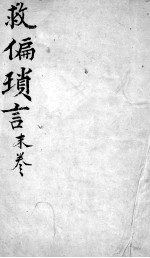 救偏瑣言末卷